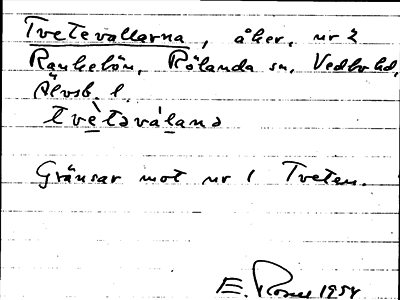 Tvetevallarna, åker, nr 2
Rankebön, Rölanda sn, Vedbo hd,
Älvsb. l.
tvè̱təvàḻanə
Gränsar mot nr 1 Tveten.
E. 1954